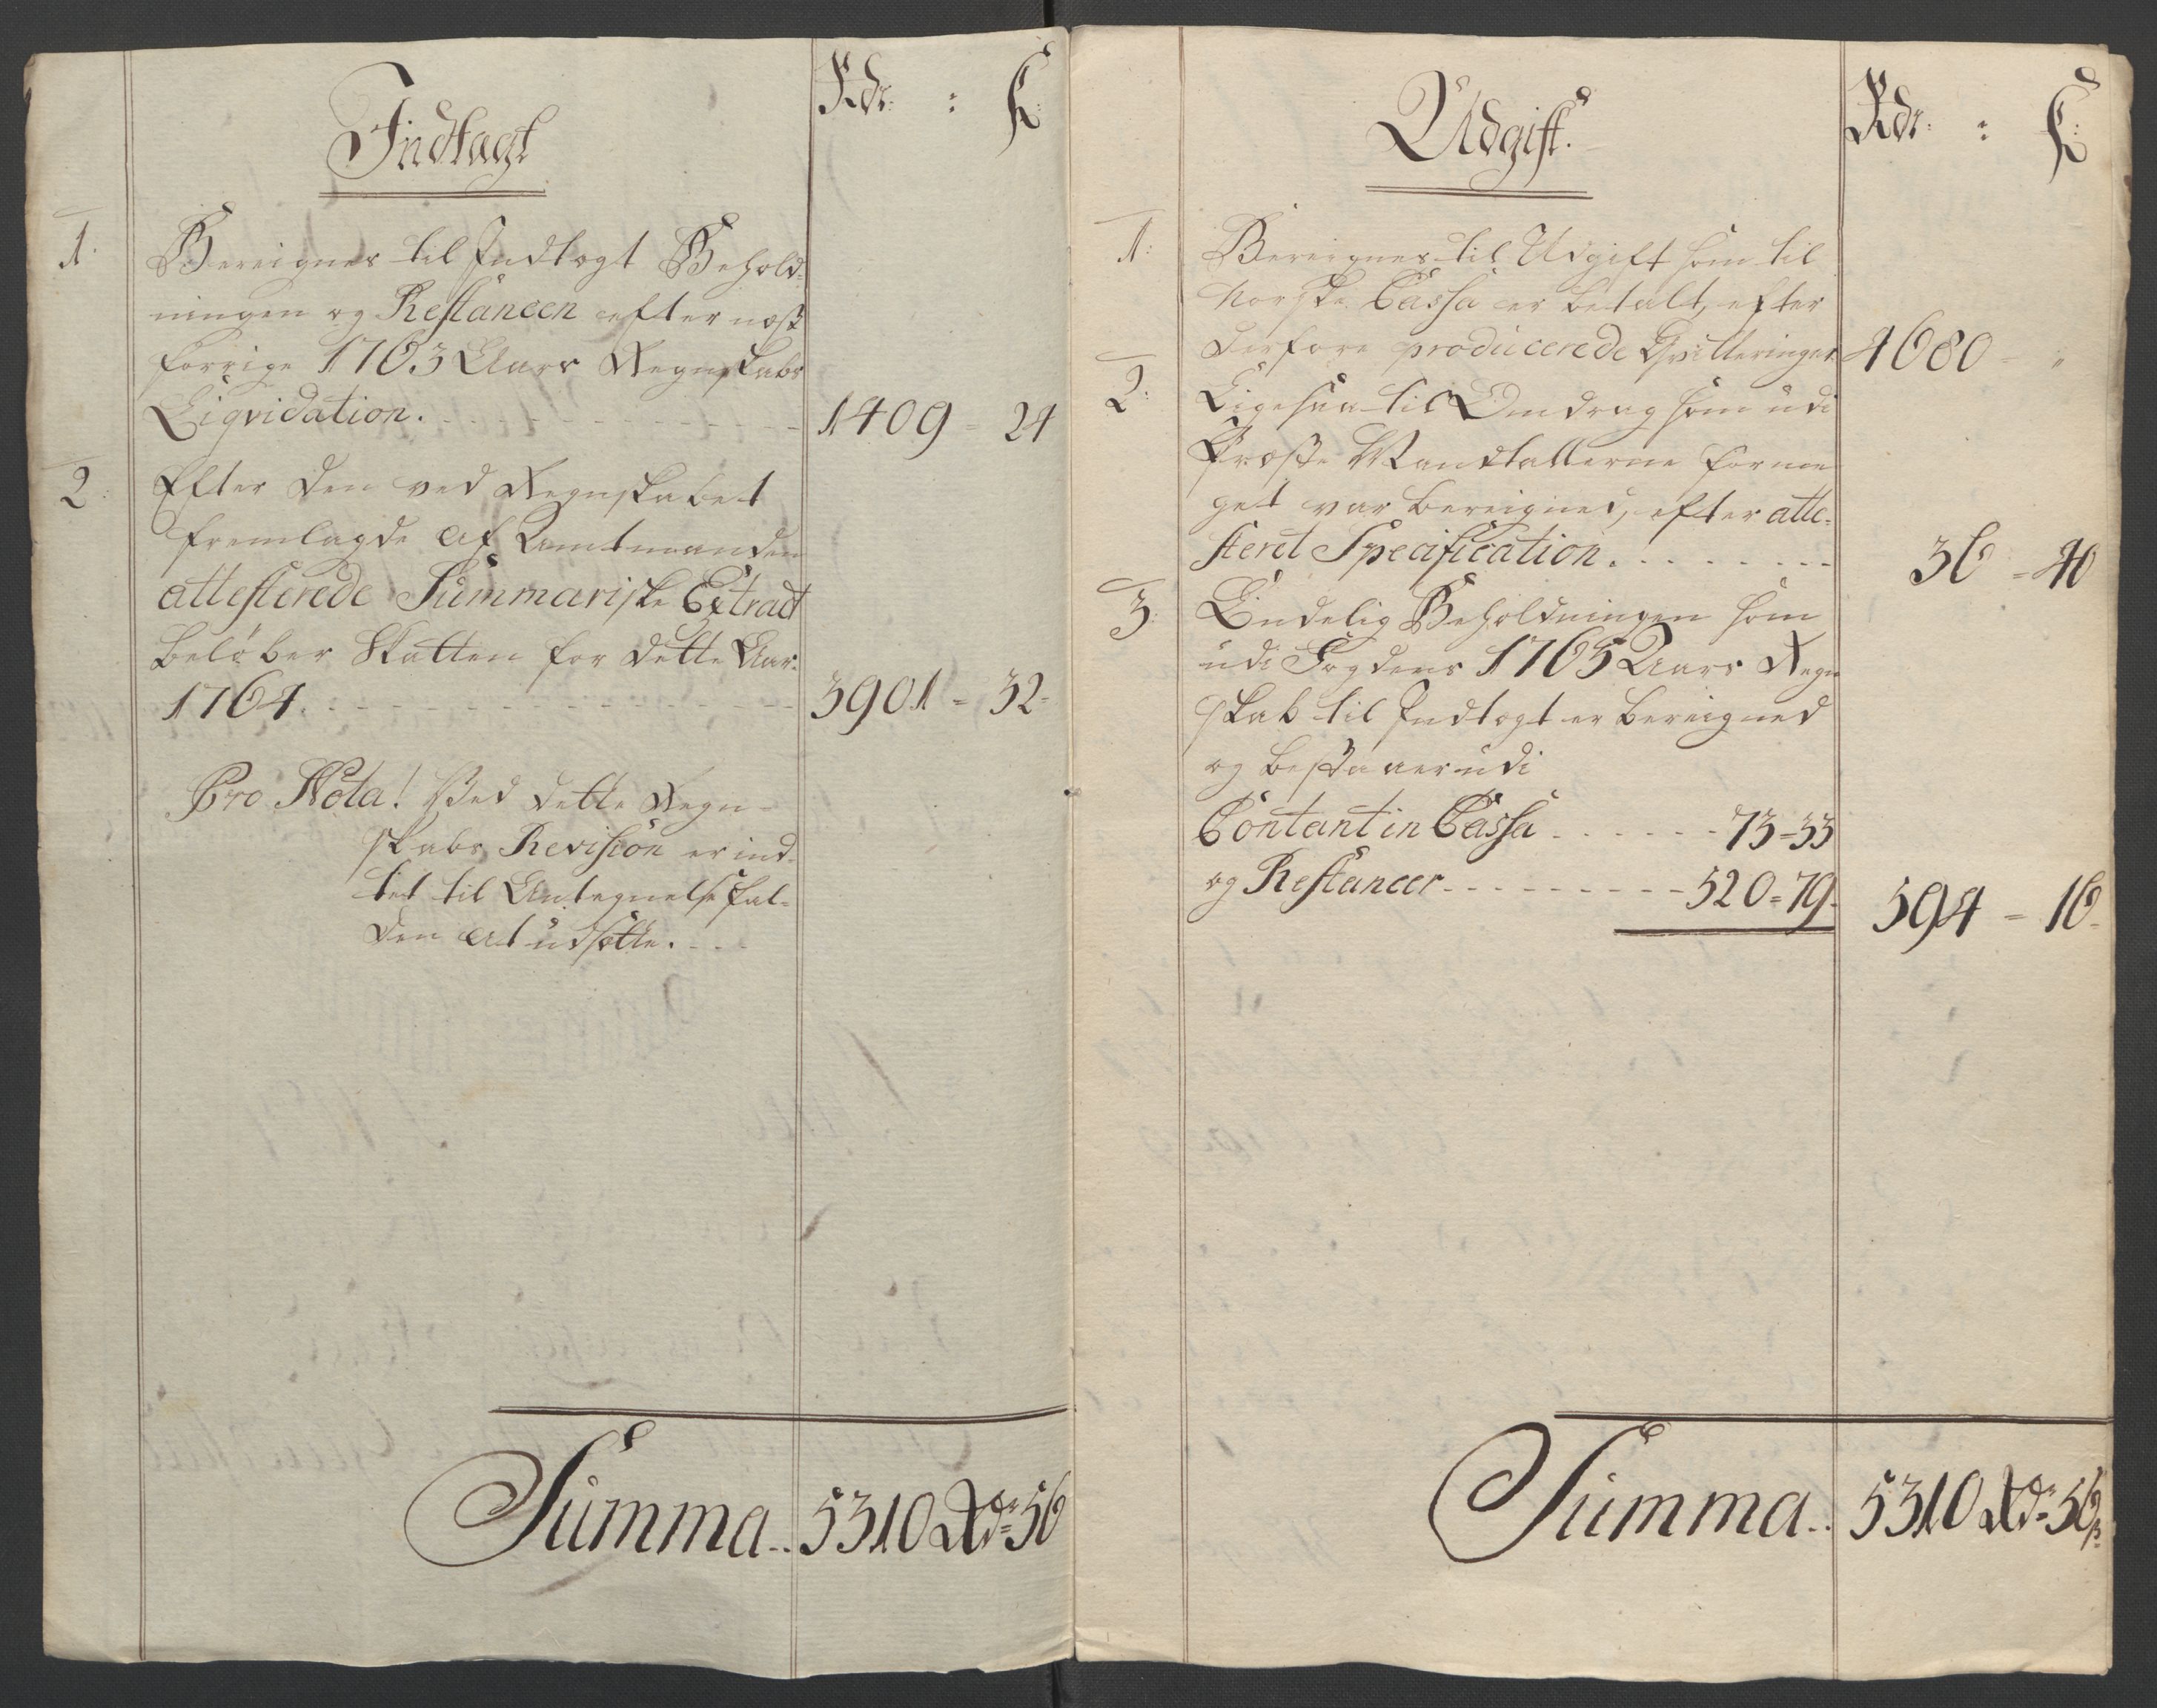 Indtagt
Rdr : ß
1. Bereignes til Indtagt Behold-
ningen og Restancen efter næst
forrige 1763 Aars Regnskabs
Liqvidation. 1409 = 24
2: Efter den ved Regnskabet
fremlagde af Amtmanden
attesterede Summariske Extract
beløber Skatten for dette Aar
1764. 3901 = 32
Pro Nota! Ved dette Regn-
skabs Revision er ind-
tet til Antegnelse fal-
den at udsætte.
Summa.. 5310 Rdr 56
Udgift.
Rdr : ß
1: Bereignes til Udgift som til
Norske Cassa er betalt, efter
derfore producerede Qvitteringer 4680 = "
2: Ligesaa til Omdrag som udi
Første Mandtallerne forme
get var bereignet, efter atte-
steret Specification. 36 = 40
3: Endelig Beholdningen som
udi Fogdens 1765 Aars Regn
skab til Indtagt er bereigned
og bestaaer udi
Contant in Cassa 73 = 33
og Restancer 520 = 79 594 = 16
Summa.. 5310 Rdr 56 ß